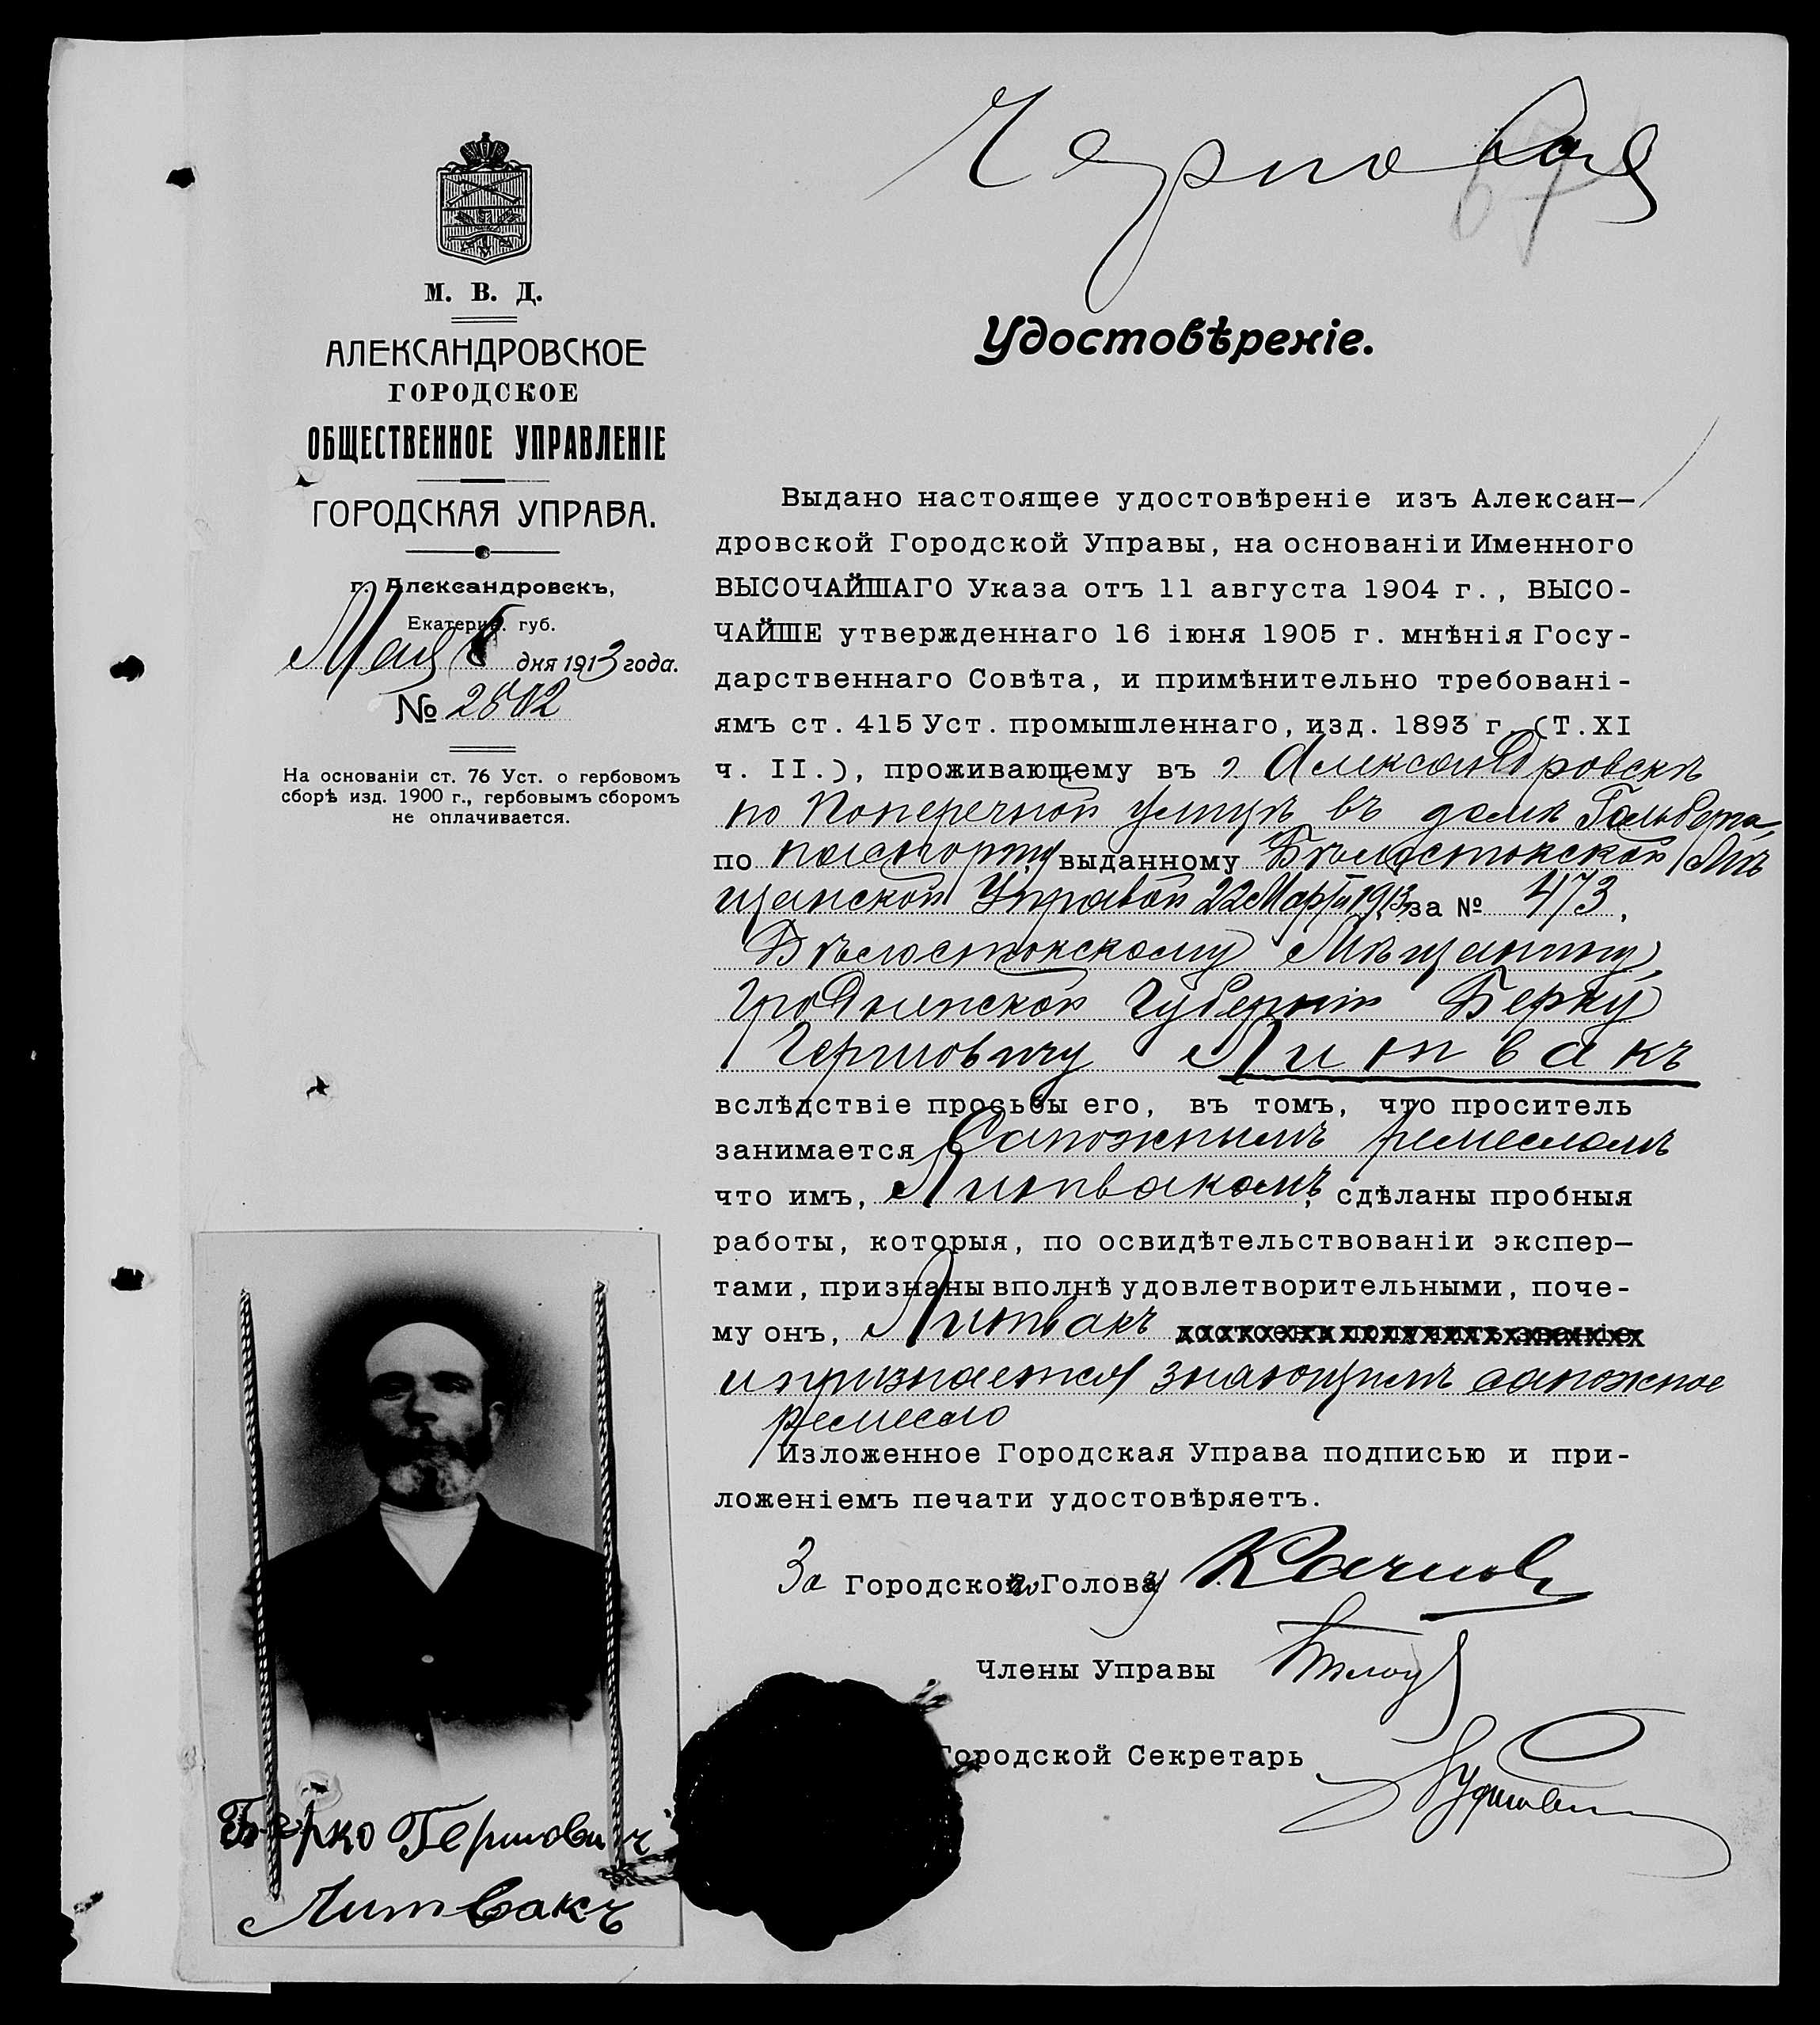 Черновая
67
М. В. Д.
АЛЕКСАНДРОВСКОЕ
ГОРОДСКОЕ
ОБЩЕСТВЕННОЕ УПРАВЛЕНІЕ
ГОРОДСКАЯ УПРАВА.
г. Александровскъ,
Екатерин. губ.
Мая 8 дня 1913 года.
№ 2802
На основаніи ст. 76 Уст. о гербовомъ
сборѣ изд. 1900 г., гербовымъ сборомъ
не оплачивается.
Удостовѣреніе.
Выдано настоящее удостовѣреніе изъ Алексан-
дровской Городской Управы, на основаніи Именного
ВЫСОЧАЙШАГО Указа отъ 11 августа 1904 г., ВЫСО-
ЧАЙШЕ утвержденнаго 16 іюня 1905 г. мнѣнія Госу-
дарственнаго Совѣта, и примѣнительно требовані-
ямъ ст. 415 Уст. промышленнаго, изд. 1893 г. (Т. XI
ч. II.), проживающему въ г Александровскѣ
по Поперечной улицѣ въ домѣ
по паспорту выданному Бѣлостокской Мѣ
щанской Управой 22 Марта 1913 за № 473,
Бѣлостокскому Мѣщанину,
Гродненской губерніи Берку
Гершовичу Литвакъ
вслѣдствіе просьбы его, въ томъ, что проситель
занимается Сапожнымъ ремесломъ
что имъ, Литвакомъ, сдѣланы пробныя
работы, которыя, по освидѣтельствованіи экспер-
тами, признаны вполнѣ удовлетворительными, поче-
му онъ, Литвакъ
и признается знающимъ сапожное
ремесло
Изложенное Городская Управа подписью и при-
ложеніемъ печати удостовѣряетъ.
За Городского Голову
Члены Управы
Городской Секретарь
Берко Гершовичъ
Литвакъ